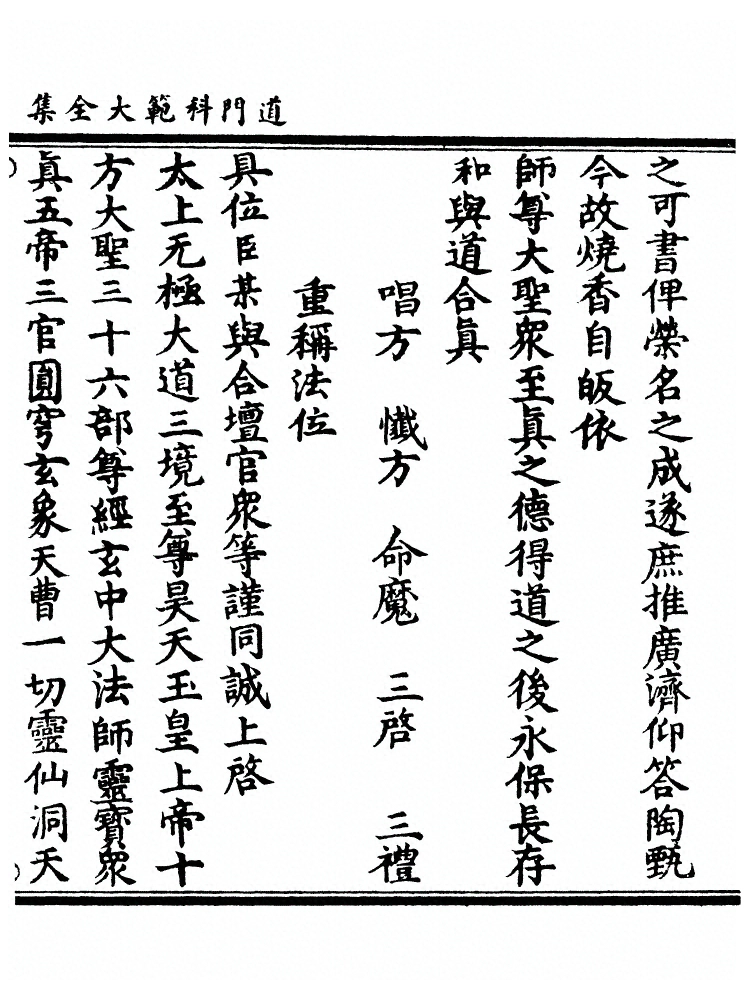 道門科範大全集
之可書俾榮名之成遂庶推廣濟仰答陶甄
今故燒香自皈依
師尊大聖眾至真之德得道之後永保長存
和與道合真
唱方　懺方　命魔　三啓　三禮
重稱法位
具位臣某與合壇官眾等謹同誠上啓
太上无極大道三境至尊昊天玉皇上帝十
方大聖三十六部尊經玄中大法師靈寶眾
真五帝三官圓穹玄象天曹一切靈仙洞天